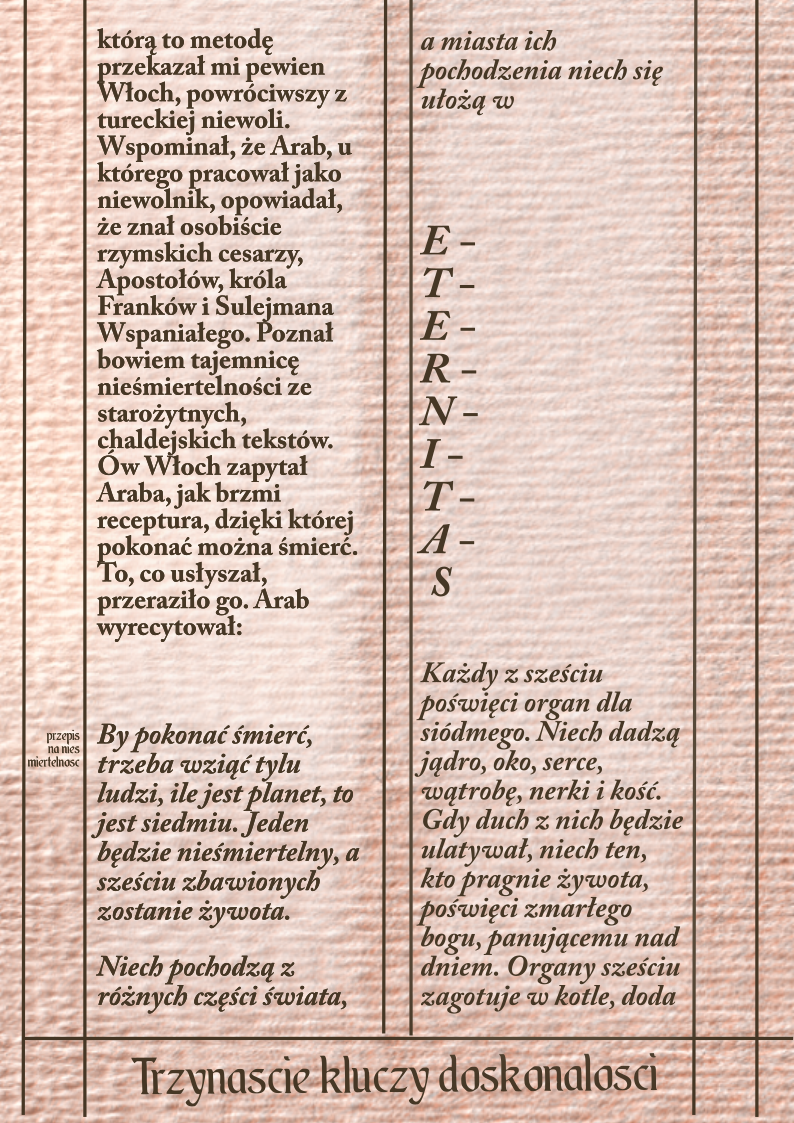 którą to metodę
przekazał mi pewien
Włoch, powróciwszy z
tureckiej niewoli.
Wspominał, że Arab, u
którego pracował jako
niewolnik, opowiadał,
że znał osobiście
rzymskich cesarzy,
Apostołów, króla
Franków i Sulejmana
Wspaniałego. Poznał
bowiem tajemnicę
nieśmiertelności ze
starożytnych,
chaldejskich tekstów.
Ów Włoch zapytał
Araba, jak brzmi
receptura, dzięki której
pokonać można śmierć.
To, co usłyszał,
przeraziło go. Arab
wyrecytował:
przepis
na nies
miertelnosc
By pokonać śmierć,
trzeba wziąć tylu
ludzi, ile jest planet, to
jest siedmiu. Jeden
będzie nieśmiertelny, a
sześciu zbawionych
zostanie żywota.
Niech pochodzą z
różnych części świata,
a miasta ich
pochodzenia niech się
ułożą w
E –
T –
E –
R –
N –
I –
T –
A –
S
Każdy z sześciu
poświęci organ dla
siódmego. Niech dadzą
jądro, oko, serce,
wątrobę, nerki i kość.
Gdy duch z nich będzie
ulatywał, niech ten,
kto pragnie żywota,
poświęci zmarłego
bogu, panującemu nad
dniem. Organy sześciu
zagotuje w kotle, doda
Trzynascie kluczy doskonalosci